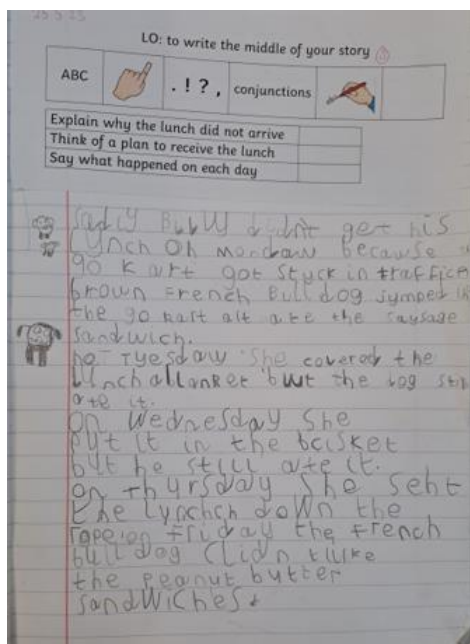 23.5.25
LO: to write the middle of your story
ABC . ! ? , conjunctions
Explain why the lunch did not arrive
Think of a plan to receive the lunch
Say what happened on each day
Sadly Bully didn't get his
Lynch on monday because
go kart got styck in traffic
brown French Bulldog jymped in
the go kart ate the saysage
sandwich.
Tyesday she covered the
but the dog
ate it.
on Wednesday she
pyt it in the bcisket
byt he still ate it.
on Thyrsday she sent
the lynchch down the
rope on Friday the French
byll dog didn tlike
the peanyt bytter
sandwiches.